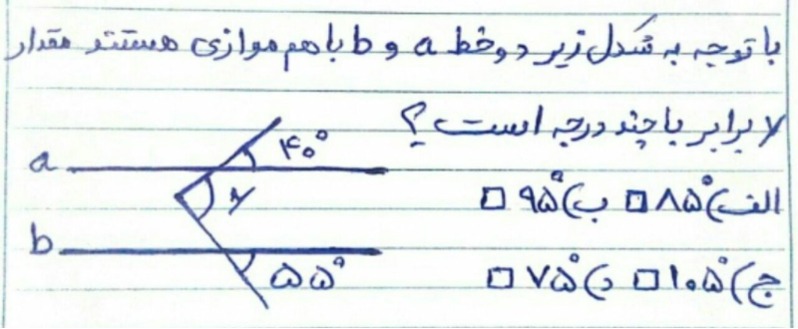 با توجه به شکل زیر دو خط a و b با هم موازی هستند مقدار
y برابر با چند درجه است؟
الف) ۸۵° □ ب) ۹۵° □
ج) ۱۰۵° □ د) ۷۵° □
a
۴۰°
y
b
۵۵°